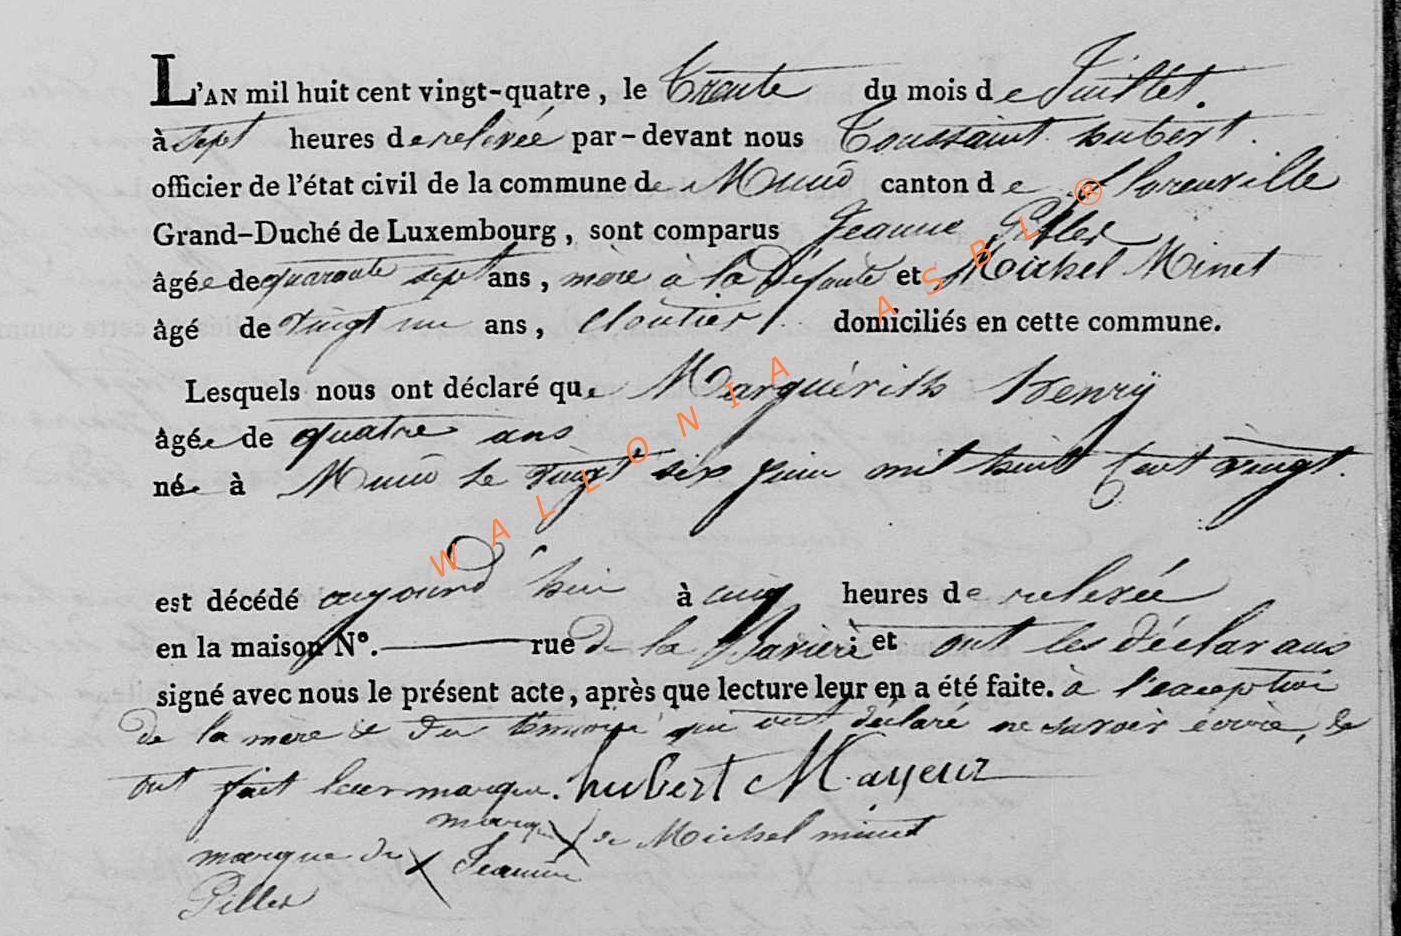 L'AN mil huit cent vingt-quatre, le trente du mois de Juillet.
à sept heures de relevée par-devant nous Toussaint hubert.
officier de l'état civil de la commune de Muno canton de florenville
Grand-Duché de Luxembourg, sont comparus Jeanne Piller
âgée de quarante sept ans, mère à la Défunte et Michel Minet
âgé de vingt un ans, Cloutier domiciliés en cette commune.
Lesquels nous ont déclaré que Marguérith henrÿ
âgée de quatre ans
née à Muno le vingt six juin mil huit Cent vingt.
est décédé aujourd'hui à cinq heures de relevée
en la maison N°. rue de la et ont les déclarans
signé avec nous le présent acte, après que lecture leur en a été faite. à l'exception
de la mère & du témoin qui ont déclaré ne savoir écrire, &
ont fait leur marque. hubert Mayeur
marque X de Michel minet
marque de X Jeanne
Piller
WALLONIA ASBL ®